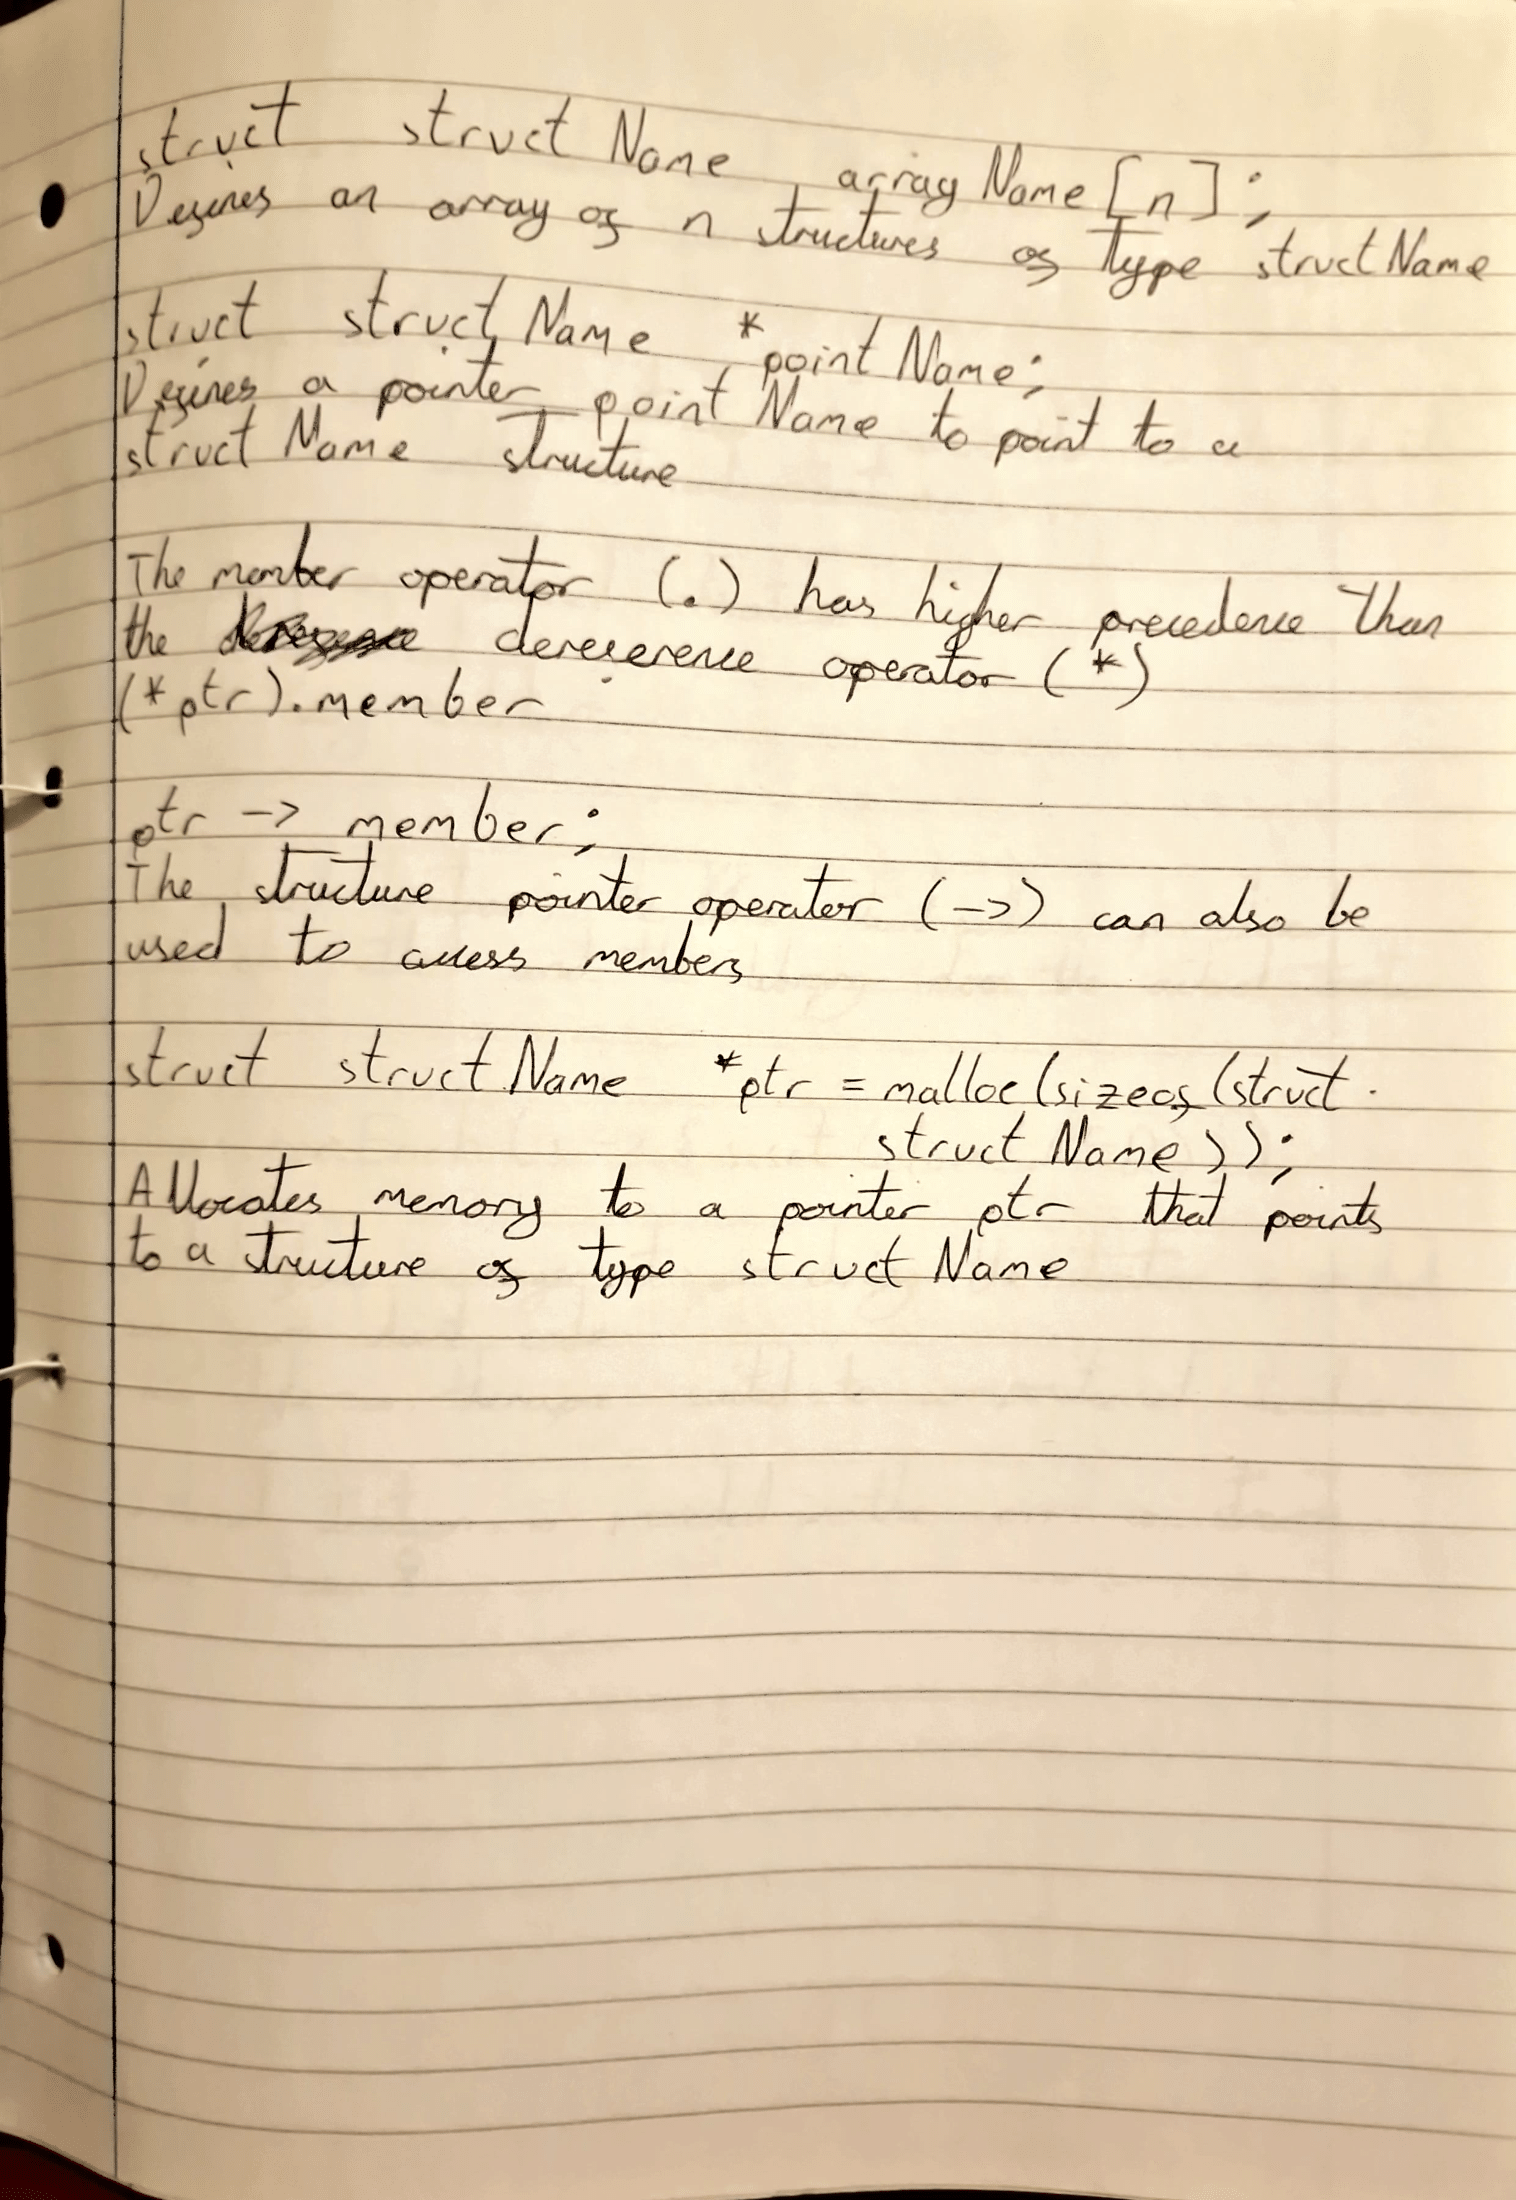 struct structName arrayName[n];
Defines an array of n structures of type structName
struct structName *pointName;
Defines a pointer pointName to point to a
structName structure
The member operator (.) has higher precedence than
the dereference operator (*)
(*ptr).member
ptr -> member;
The structure pointer operator (->) can also be
used to access members
struct structName *ptr = malloc(sizeof(struct
structName));
Allocates memory to a pointer ptr that points
to a structure of type structName